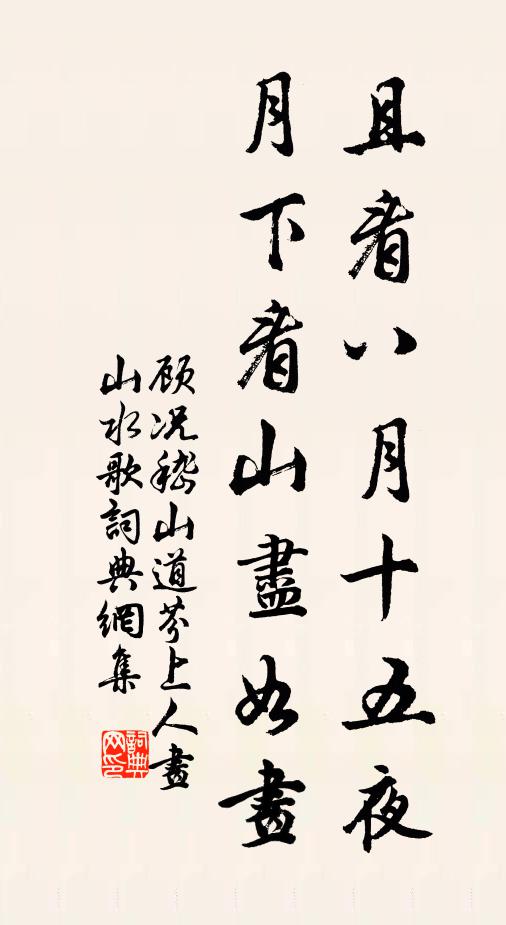 且看八月十五夜
月下看山盡如畫
顾况稽山道芬上人畫
山水歌詞典網集
詞典网印